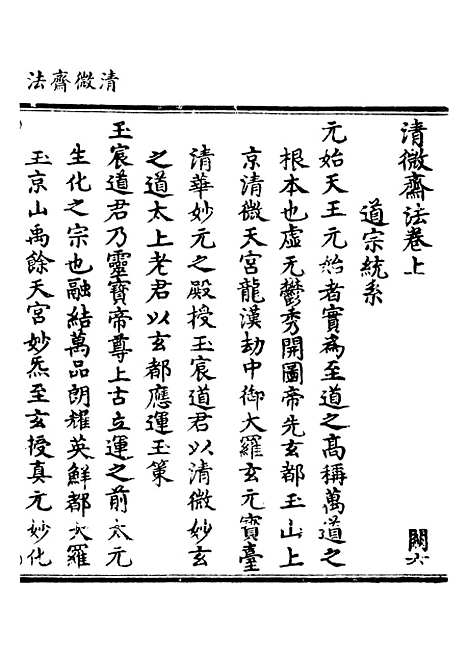 清微齋法
清微齋法卷上
闕六
道宗統系
元始天王元始者實為至道之高稱萬道之
根本也虛无鬱秀開圖帝先玄都玉山上
京清微天宮龍漢劫中御大羅玄元寶臺
清華妙元之殿授玉宸道君以清微妙玄
之道太上老君以玄都應運玉䇿
玉宸道君乃靈寶帝尊上古立運之前太元
生化之宗也融結萬品朗耀英鮮都大羅
玉京山禹餘天宮妙炁至玄授真元妙化